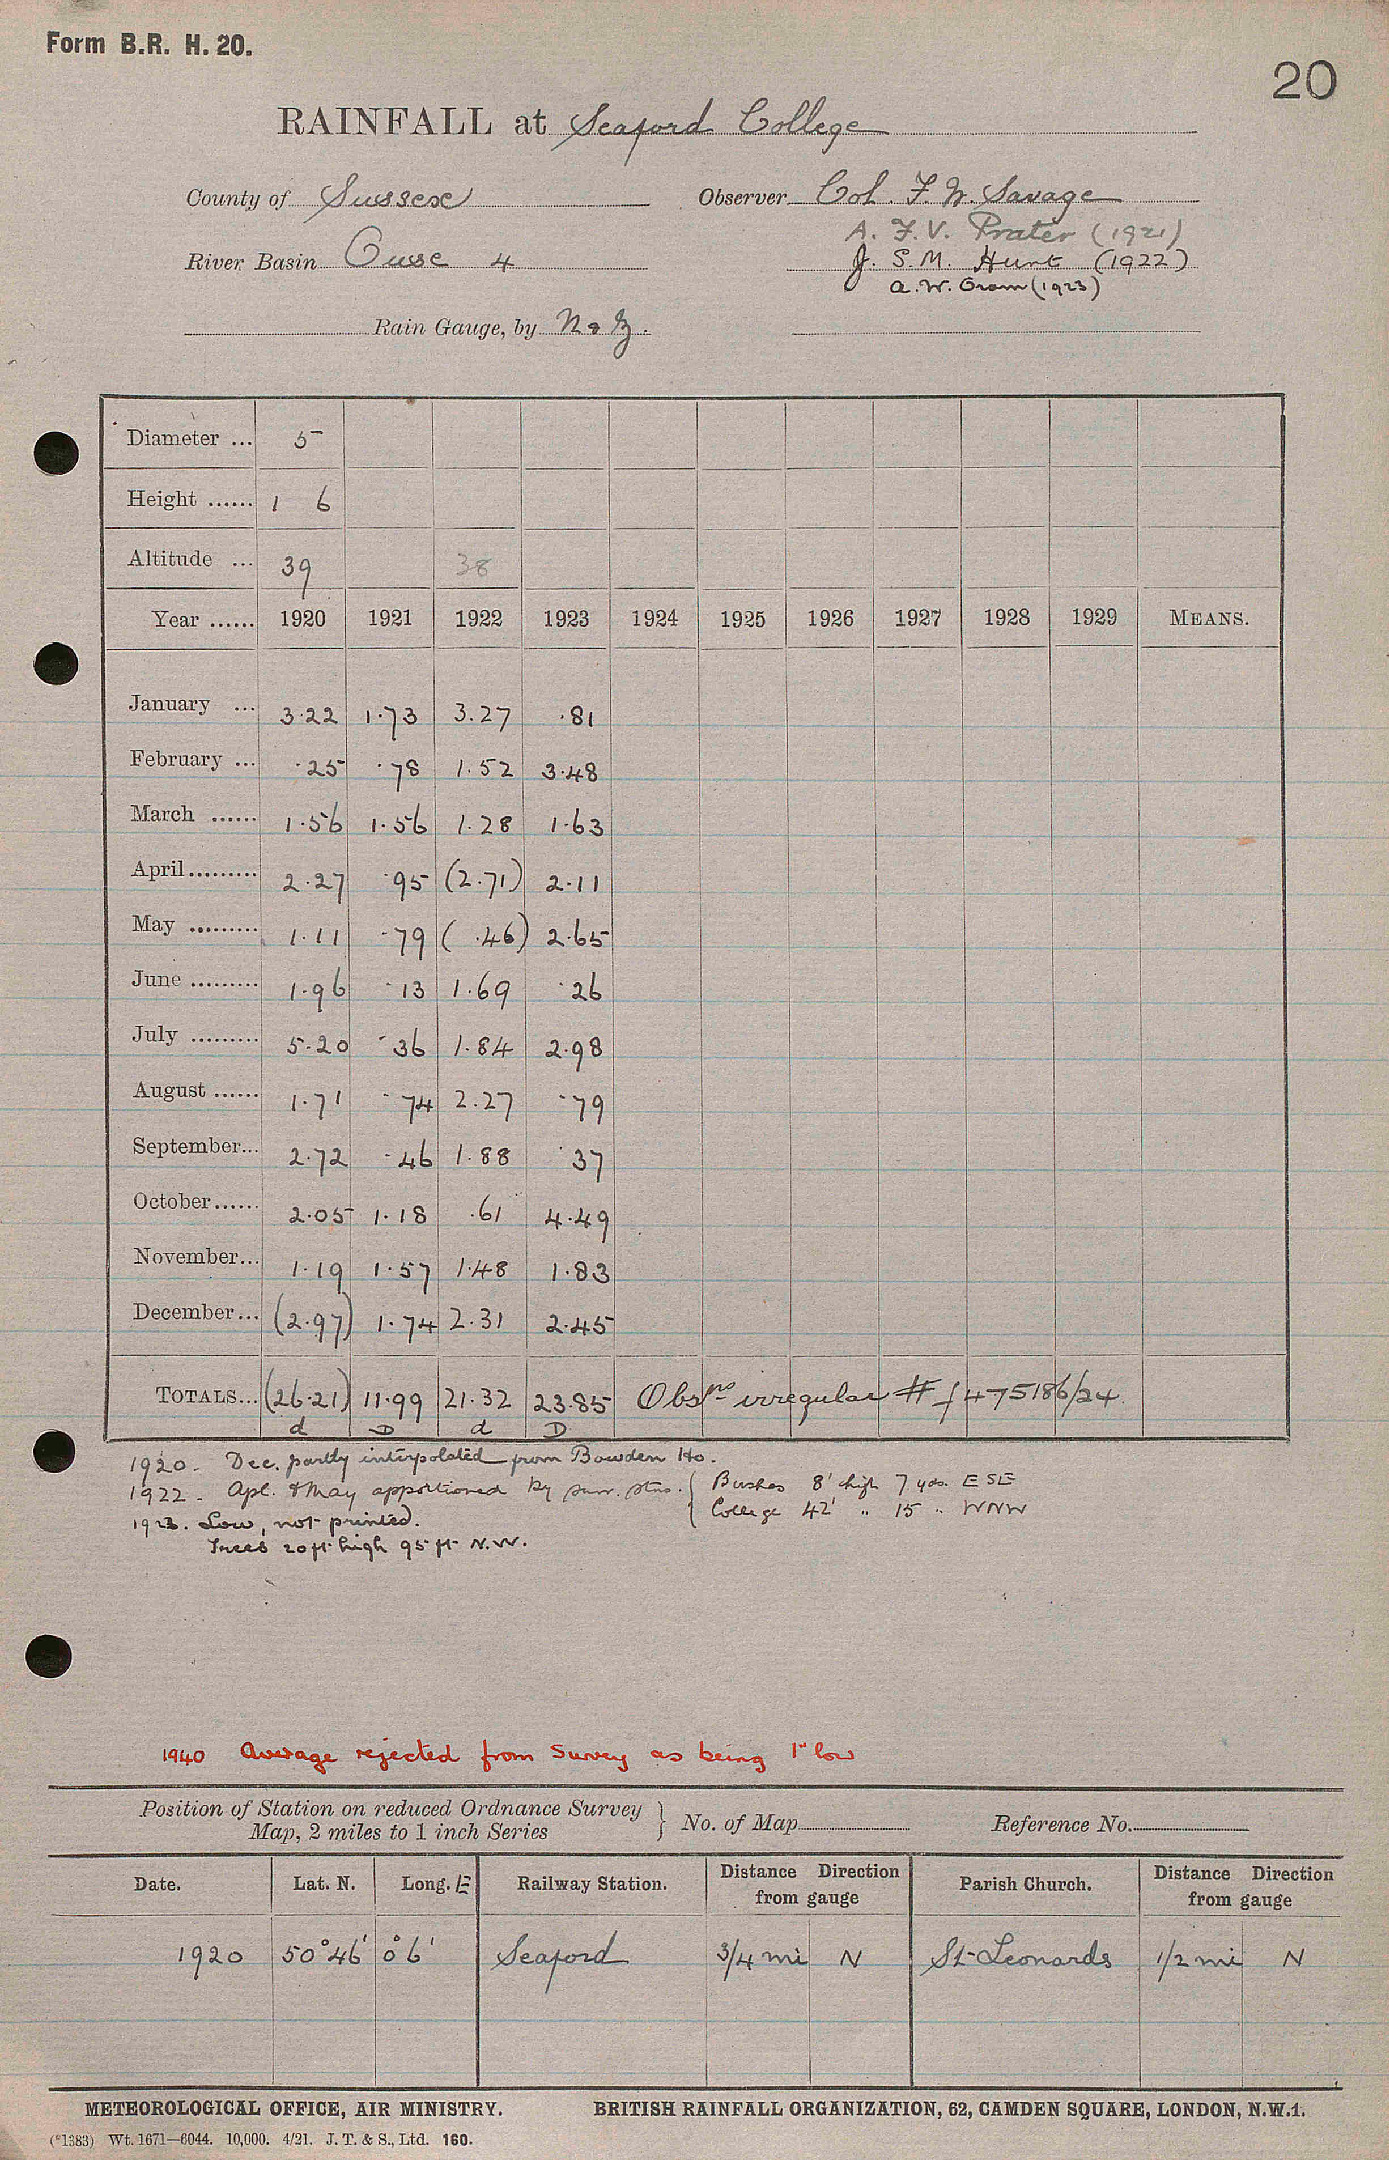 Form B.R. H. 20.
20
RAINFALL at Seaford College
County of Sussex Observer Col. F. W. Savage
A. F. V. Prater (1921)
River Basin Ouse 4 J. S. M. Hunt (1922)
A. W. Oram (1923)
Rain Gauge, by N & Z.
Diameter ... 5
Height ...... 1 6
Altitude ... 39 38
Year ...... 1920 1921 1922 1923 1924 1925 1926 1927 1928 1929 MEANS.
January ... 3.22 1.73 3.27 .81
February ... .25 .78 1.52 3.48
March ...... 1.56 1.56 1.28 1.63
April......... 2.27 .95 (2.71) 2.11
May ......... 1.11 .79 ( .46) 2.65
June ......... 1.96 .13 1.69 .26
July ......... 5.20 .36 1.84 2.98
August ...... 1.71 .74 2.27 .79
September... 2.72 .46 1.88 .37
October...... 2.05 1.18 .61 4.49
November... 1.19 1.57 1.48 1.83
December... (2.97) 1.74 2.31 2.45
TOTALS... (26.21) 11.99 21.32 23.85 Obsns irregular # f 475186/24
d D d D
1920. Dec. partly interpolated from Bowden Ho.
1922. Apl. & May apportioned by surr. stns. { Bushes 8' high 7 yds. ESE
College 42' " 15 " WNW
1923. Low, not printed.
Trees 20 ft high 95 ft N.W.
1940 Average rejected from Survey as being 1" low
Position of Station on reduced Ordnance Survey
Map, 2 miles to 1 inch Series } No. of Map Reference No.
Date. Lat. N. Long. E Railway Station. Distance from gauge Direction Parish Church. Distance from gauge Direction
1920 50°46' 0°6' Seaford 3/4 mi N St Leonards 1/2 mi N
METEOROLOGICAL OFFICE, AIR MINISTRY. BRITISH RAINFALL ORGANIZATION, 62, CAMDEN SQUARE, LONDON, N.W.1.
(*1383) Wt. 1671—6044. 10,000. 4/21. J. T. & S., Ltd. 160.